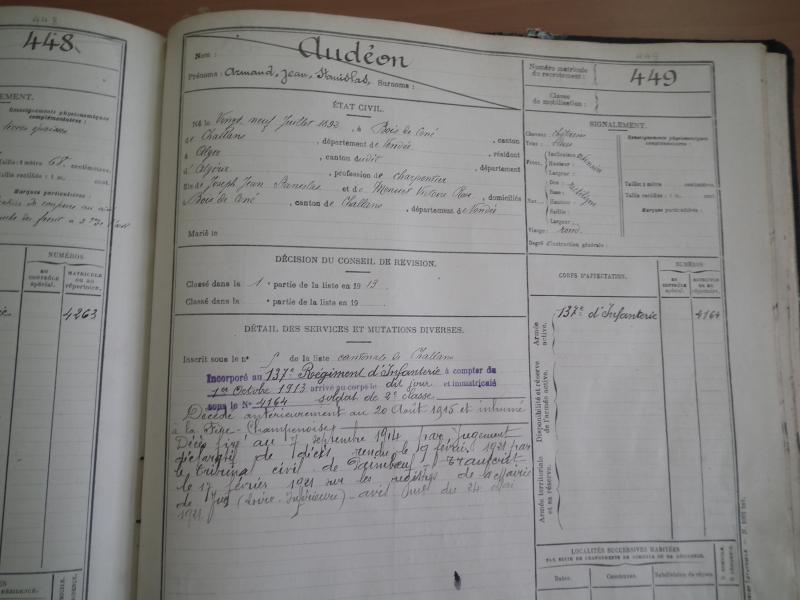 448
448.
EMENT.
Renseignements physionomiques
complémentaires :
Taille : 1 mètre 68 centimètres.
Taille rectifiée : 1 m. cent.
Marques particulières :
NUMÉROS
AU CONTRÔLE spécial.
MATRICULE OU AU répertoire.
4263
Nom : Audéon
Prénoms : Armand, Jean, Stanislas, Surnoms :
ÉTAT CIVIL.
Né le Vingt neuf Juillet 1892, à Bois de Cené, canton
de Challans, département de Vendée, résidant
à Alger, canton dudit, département
d'Algérie, profession de charpentier
fils de Joseph Jean Stanislas et de Victoire Rose, domiciliés
Bois de Cené, canton de Challans, département de Vendée
Marié le
DÉCISION DU CONSEIL DE RÉVISION.
Classé dans la 1 partie de la liste en 1913.
Classé dans la partie de la liste en 19
DÉTAIL DES SERVICES ET MUTATIONS DIVERSES.
Inscrit sous le n° de la liste cantonale de Challans
Incorporé au 137e Régiment d'Infanterie à compter du
1er Octobre 1913 arrivé au corps le dit jour et immatriculé
sous le N° 4164 soldat de 2e classe
Décédé antérieurement au 20 Août 1915 et inhumé
à la Fère-Champenoise
Décès fixé au 7 septembre 1914 par jugement
déclaratif de décès rendu le 9 février 1921 par
le tribunal civil de Paimbœuf. Transcrit
le 17 février 1921 sur les registres de la Mairie
de (Loire-Inférieure) - avis du 24 Mai
1921.
449
Numéro matricule
du recrutement :
449
Classe
de mobilisation :
SIGNALEMENT.
Cheveux châtains
Yeux
Front. Inclinaison
Hauteur :
Largeur :
Nez. Dos : rectiligne
Base :
Hauteur :
Saillie :
Largeur :
Visage : rond
Renseignements physionomiques
complémentaires :
Taille : 1 mètre centimètres.
Taille rectifiée : 1 m. cent.
Marques particulières :
Degré d'instruction générale :
CORPS D'AFFECTATION.
NUMÉROS
AU CONTRÔLE spécial.
MATRICULE OU AU répertoire.
Armée active.
137e d'Infanterie
4164
Disponibilité et réserve de l'armée active.
Armée territoriale et sa réserve.
LOCALITÉS SUCCESSIVES HABITÉES
PAR SUITE DE CHANGEMENTS DE DOMICILE OU DE RÉSIDENCE.
Dates.
Communes.
Subdivision de région.
D. DOMICILE
R. RÉSIDENCE.